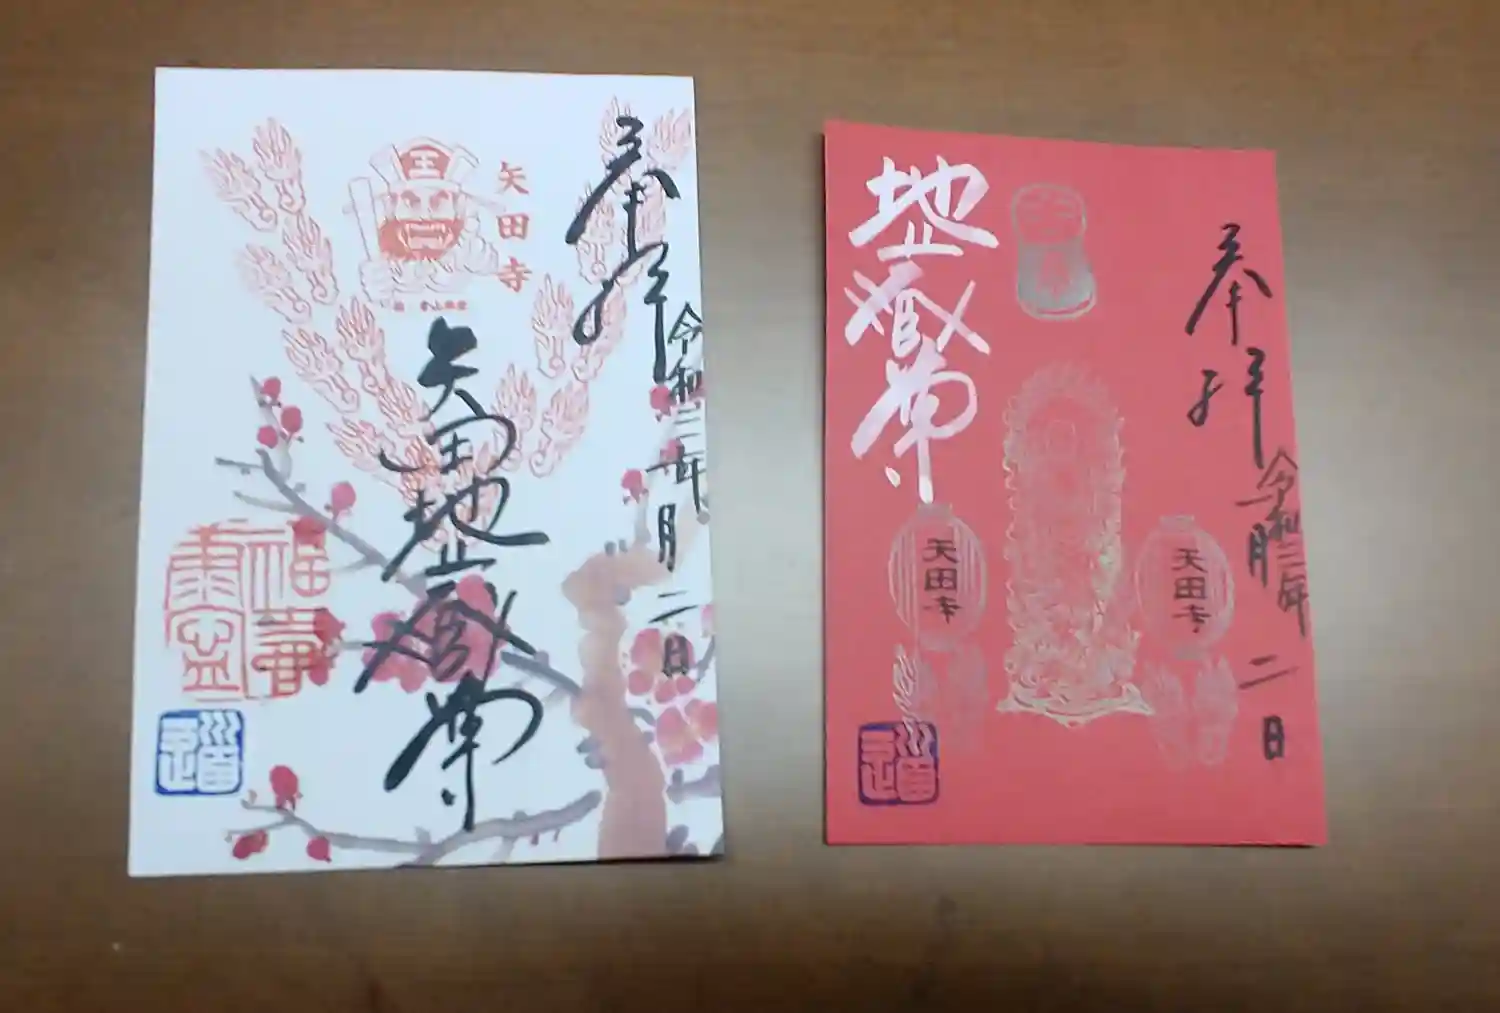 奉拝
令和三年
一月
二日
王
矢田寺
矢田地蔵尊
福寿
奉拝
令和三年
一月
二日
地蔵尊
矢田寺
矢田寺